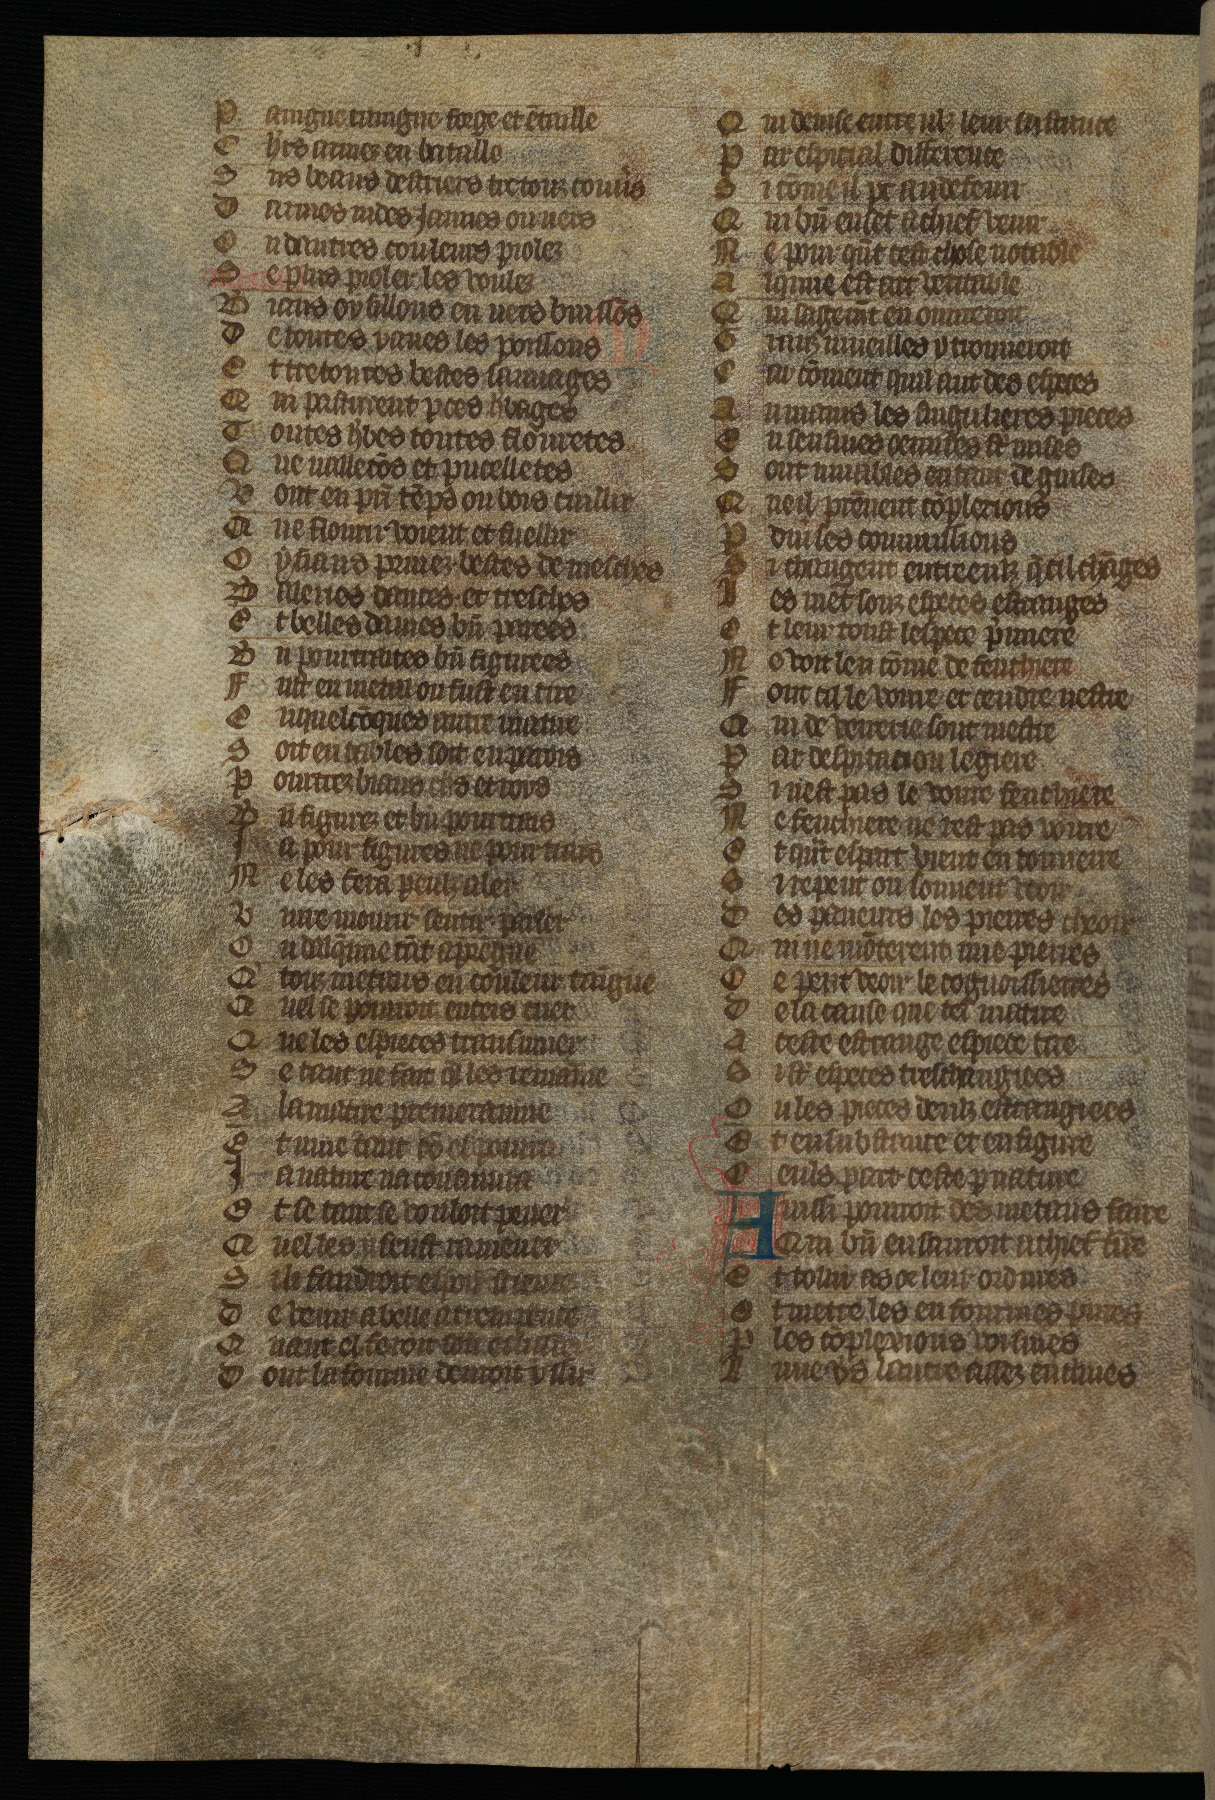 P aingne taingne forge et entaille
C hrs armes en bataille
S us beaus destriers tretouz couuers
D armes yndes jaunes ou uers
O u dautres couleurs piolez
S e plus pioler les voulez
B iaus oysillons en uers buissons
D e toutes yaues les poissons
E t tretoutes bestes sauuages
Q ui pasturent par ces riuages
T outes herbes toutes flouretes
Q ue ualletons et pucelletes
V ont en printemps ou bois cuillir
Q ue flourir voient et fuellir
O ysiaus priuez bestes domesches
B aleries dances et tresches
E t belles dames bien parees
B n pourtraites bn figurees
F uit en metal ou fust en cire
C uquelcōques autre matire
S oit en tables soit en parois
P ourtrez biaus et
B n figurez et bn pourtrais
J a pour figures ne pour trais
N e les fera par eulz aler
V iure mouuir sentir parler
O u dalquime tāt apreigne
Q touz metaus en couleur taigne
Q uel se pourroit encois tuer
Q ue les especes transmuer
S e tant ne fait quil les ramaine
A la matire premeraine
E t uure tant
J a nature naconsuiura
E t se tant se vouloit pener
Q uel les y seust ramener
S ili faudroit espoir science
D e venir a celle atrempence
Q uant el feroit son
D ont la fourme deuroit yssir
Q ui deuise entre ulz leur sustance
P ar espicial difference
S i cōme il pt au defenir
Q ui bn en set a chief venir
N e pour qut cest chose notable
A lquime est art veritable
Q ui sagemt en ouureroit
G rans mueilles y trouueroit
C ar cōment quil aut des especes
A u mains les singulieres pieces
E n sensiues oeuures st mises
S ont muables en tant de guises
Q ueil pruent cōplexions
P diuses commistions
S i changent entre eulz q cil chāges
L es met souz especes estranges
E t leur toust lespece pmiere
N e voit len cōme de feuchiere
F ont cil le voirre et cendre nestre
Q ui de verrerie sont mestre
P ar despuracion legiere
S i nest pas le voirre feuchiere
N e feuchiere ne rest pas voirre
E t qūt espart vient en tonnerre
S i repeut on souuent veoir
D es vapeurs les pierres cheoir
Q ui ne mōterent mie pierres
C e peut veoir le cognoissierres
D e la cause que tel matire
A ceste estrange espiece tire
S ist especes treschangiees
O u les pieces deulz estrangiees
E t en substance et en figure
C euls p art ceste p nature
Aussi pourroit des metaus faire
Q ui bn en sauroit a chief tire
E t tolir as ors leur ordures
E t mettre les en fourmes pures
P les cōplexions voisines
L une vs lautre assez enclines